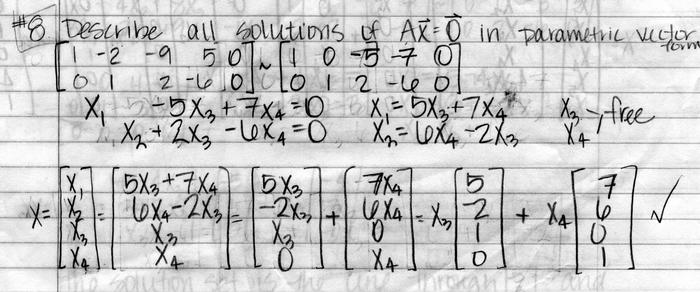 #8 Describe all solutions of Ax⃗=0⃗ in parametric vector form
[1 -2 -9 5 0; 0 1 2 -6 0] ~ [1 0 -5 -7 0; 0 1 2 -6 0]
X₁ -5X₃+7X₄=0 X₁=5X₃+7X₄ X₃ X₄ > free
X₂+2X₃-6X₄=0 X₂=6X₄-2X₃
X=[X₁; X₂; X₃; X₄]=[5X₃+7X₄; 6X₄-2X₃; X₃; X₄]=[5X₃; -2X₃; X₃; 0]+[7X₄; 6X₄; 0; X₄]=X₃[5; -2; 1; 0]+X₄[7; 6; 0; 1] ✓